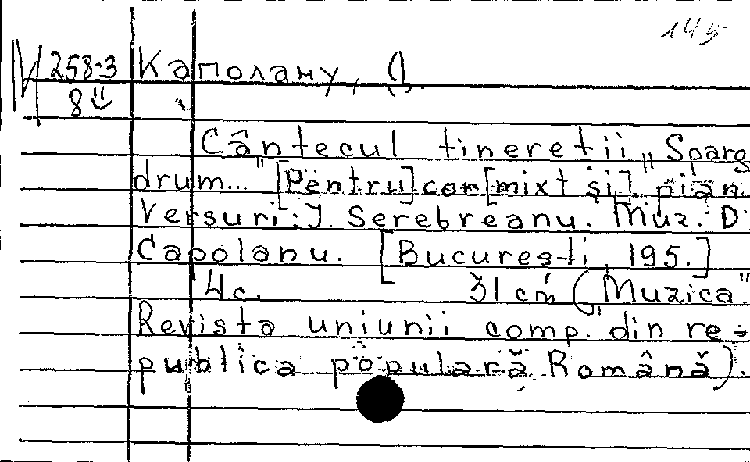 145
М 258-3 Каполану, D.
8
Cântecul tineretii „Sparg
drum..." [Pentru] cor [mixt și] pian.
Versuri: I. Serebreanu. Muz. D.
Capolanu. [București, 195.]
4 с. 31 cm ("Muzica"
Revista uniunii comp. din re=
publica populară Română).